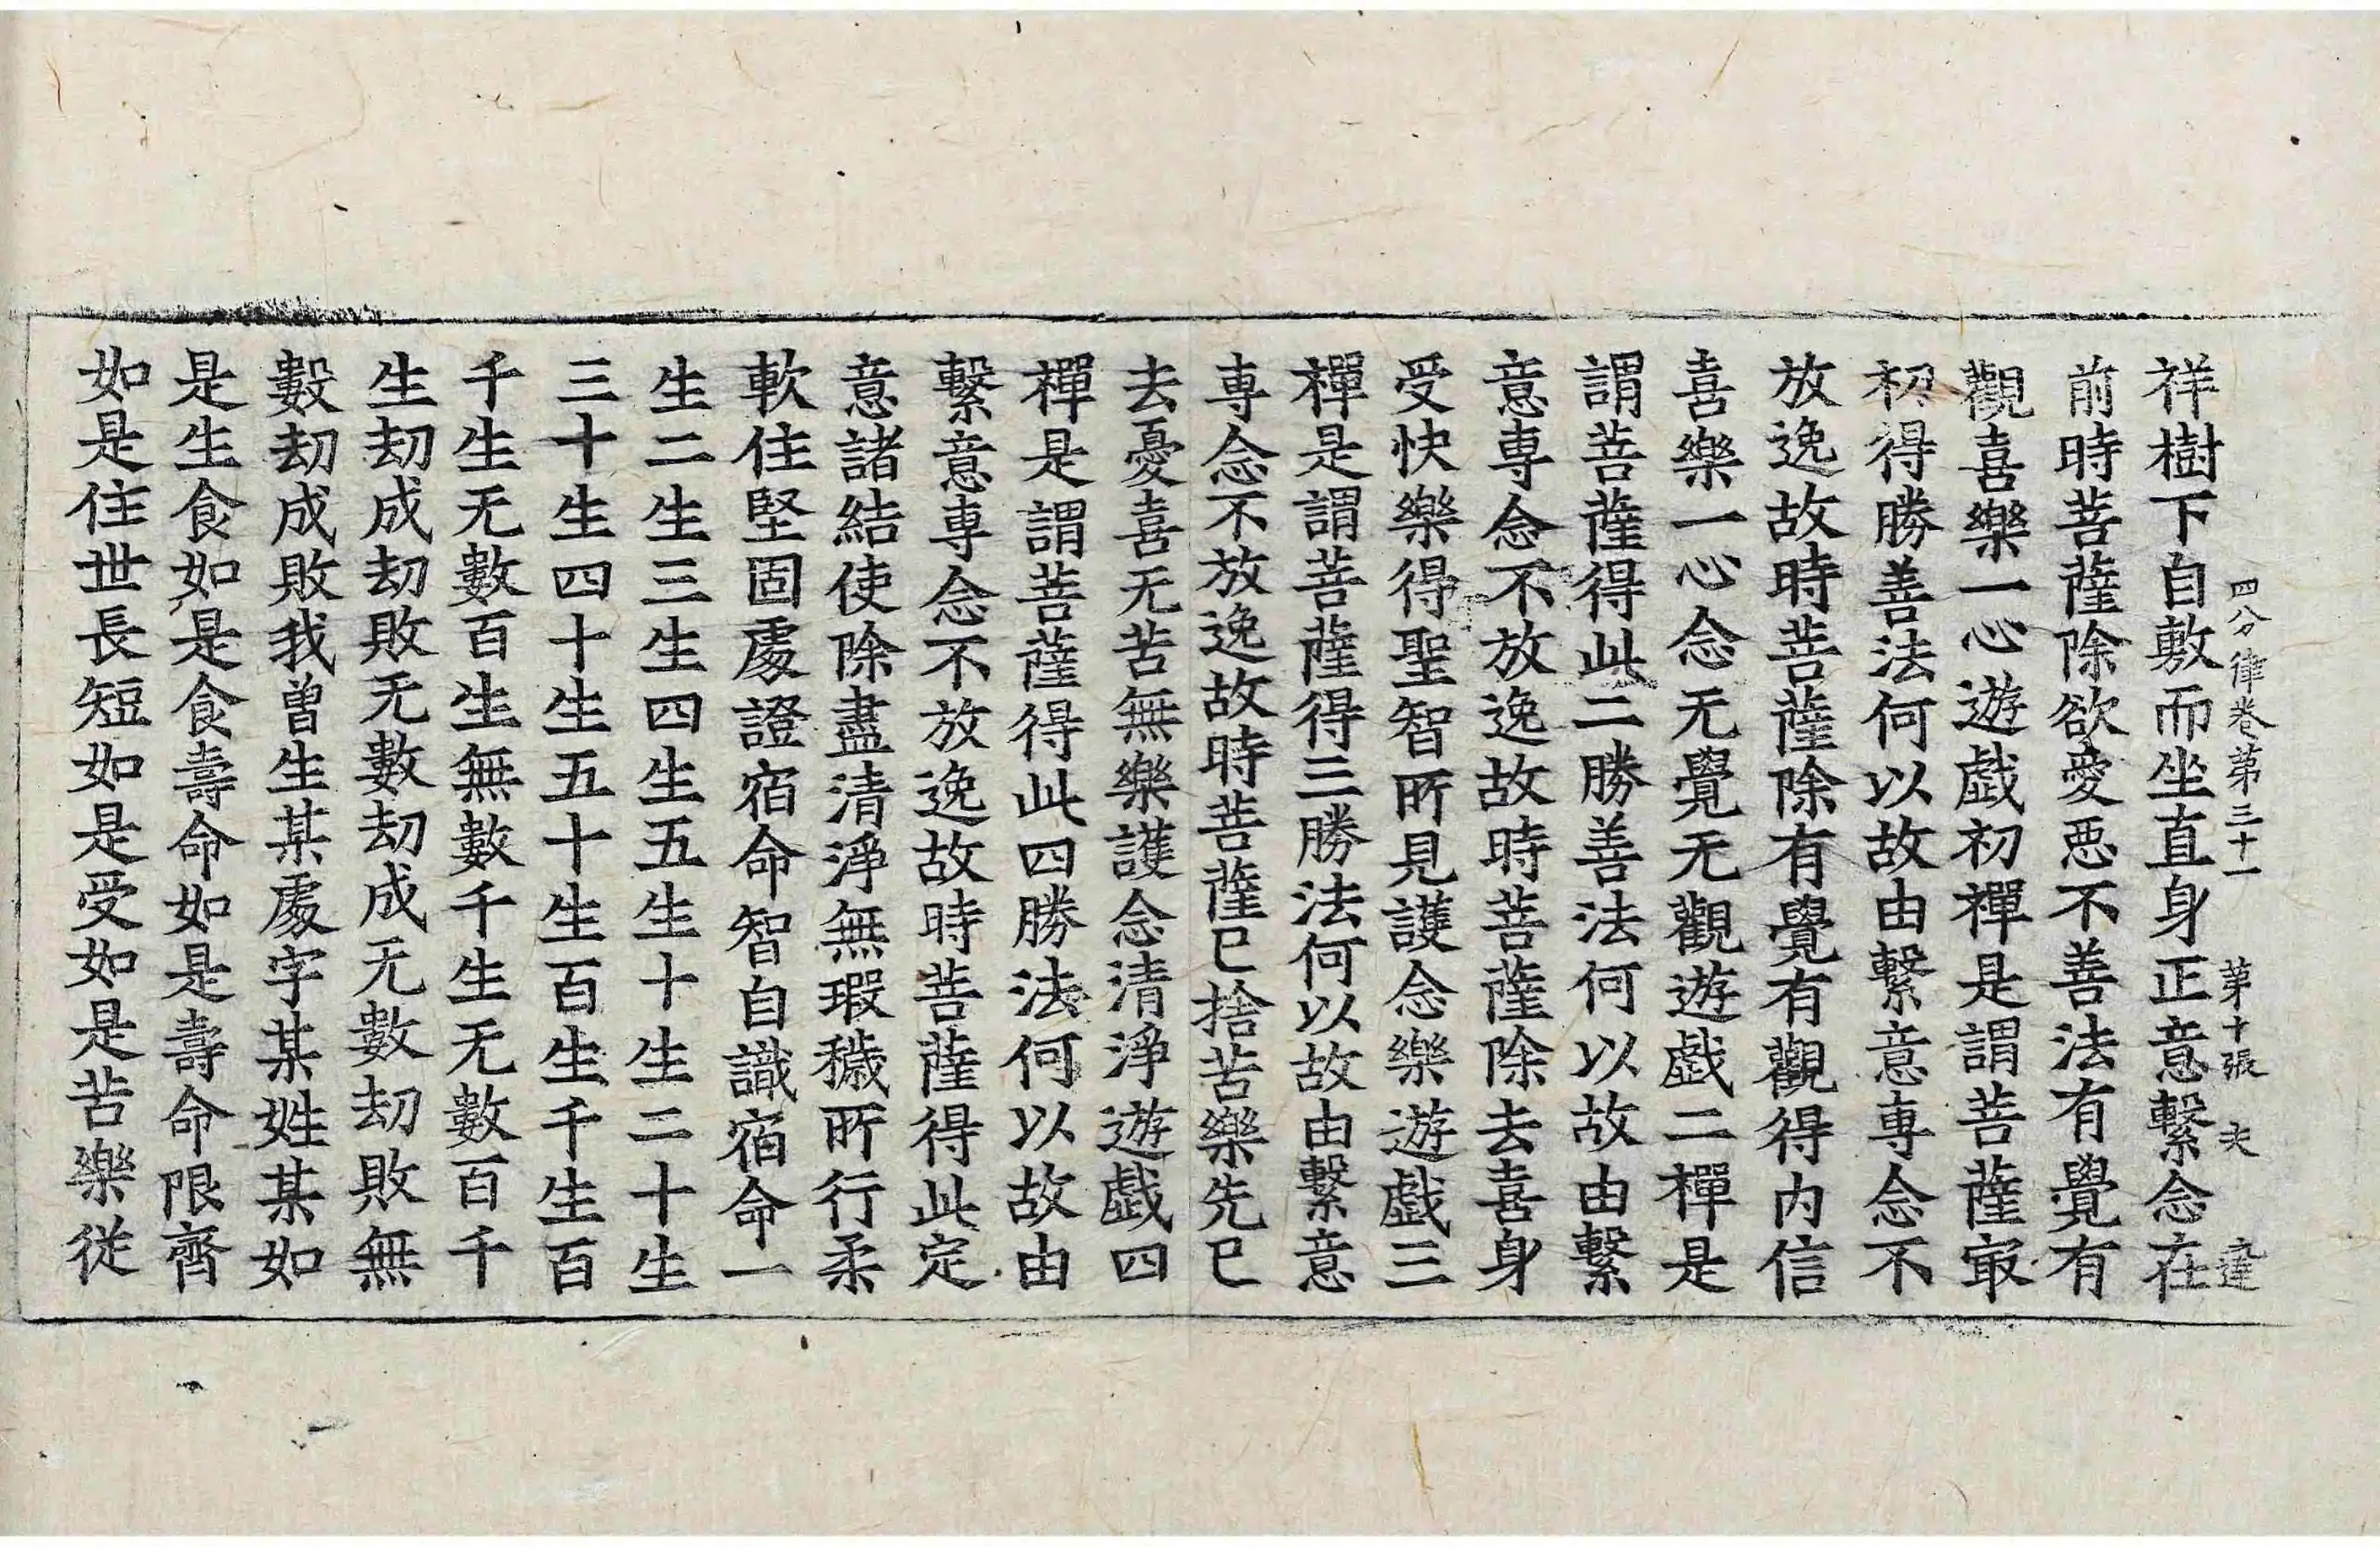 四分律卷第三十一 第十張 夫
祥樹下自敷而坐直身正意繫念在
前時菩薩除欲愛惡不善法有覺有
觀喜樂一心遊戲初禪是謂菩薩㝡
初得勝善法何以故由繫意專念不
放逸故時菩薩除有覺有觀得內信
喜樂一心念无覺无觀遊戲二禪是
謂菩薩得此二勝善法何以故由繫
意專念不放逸故時菩薩除去喜身
受快樂得聖智所見護念樂遊戲三
禪是謂菩薩得三勝法何以故由繫意
專念不放逸故時菩薩已捨苦樂先已
去憂喜无苦無樂護念清淨遊戲四
禪是謂菩薩得此四勝法何以故由
繫意專念不放逸故時菩薩得此定
意諸結使除盡清淨無瑕穢所行柔
軟住堅固處證宿命智自識宿命一
生二生三生四生五生十生二十生
三十生四十生五十生百生千生百
千生无數百生無數千生无數百千
生劫成劫敗无數劫成无數劫敗無
數劫成敗我曾生某處字某姓某如
是生食如是食壽命如是壽命限齊
如是住世長短如是受如是苦樂從